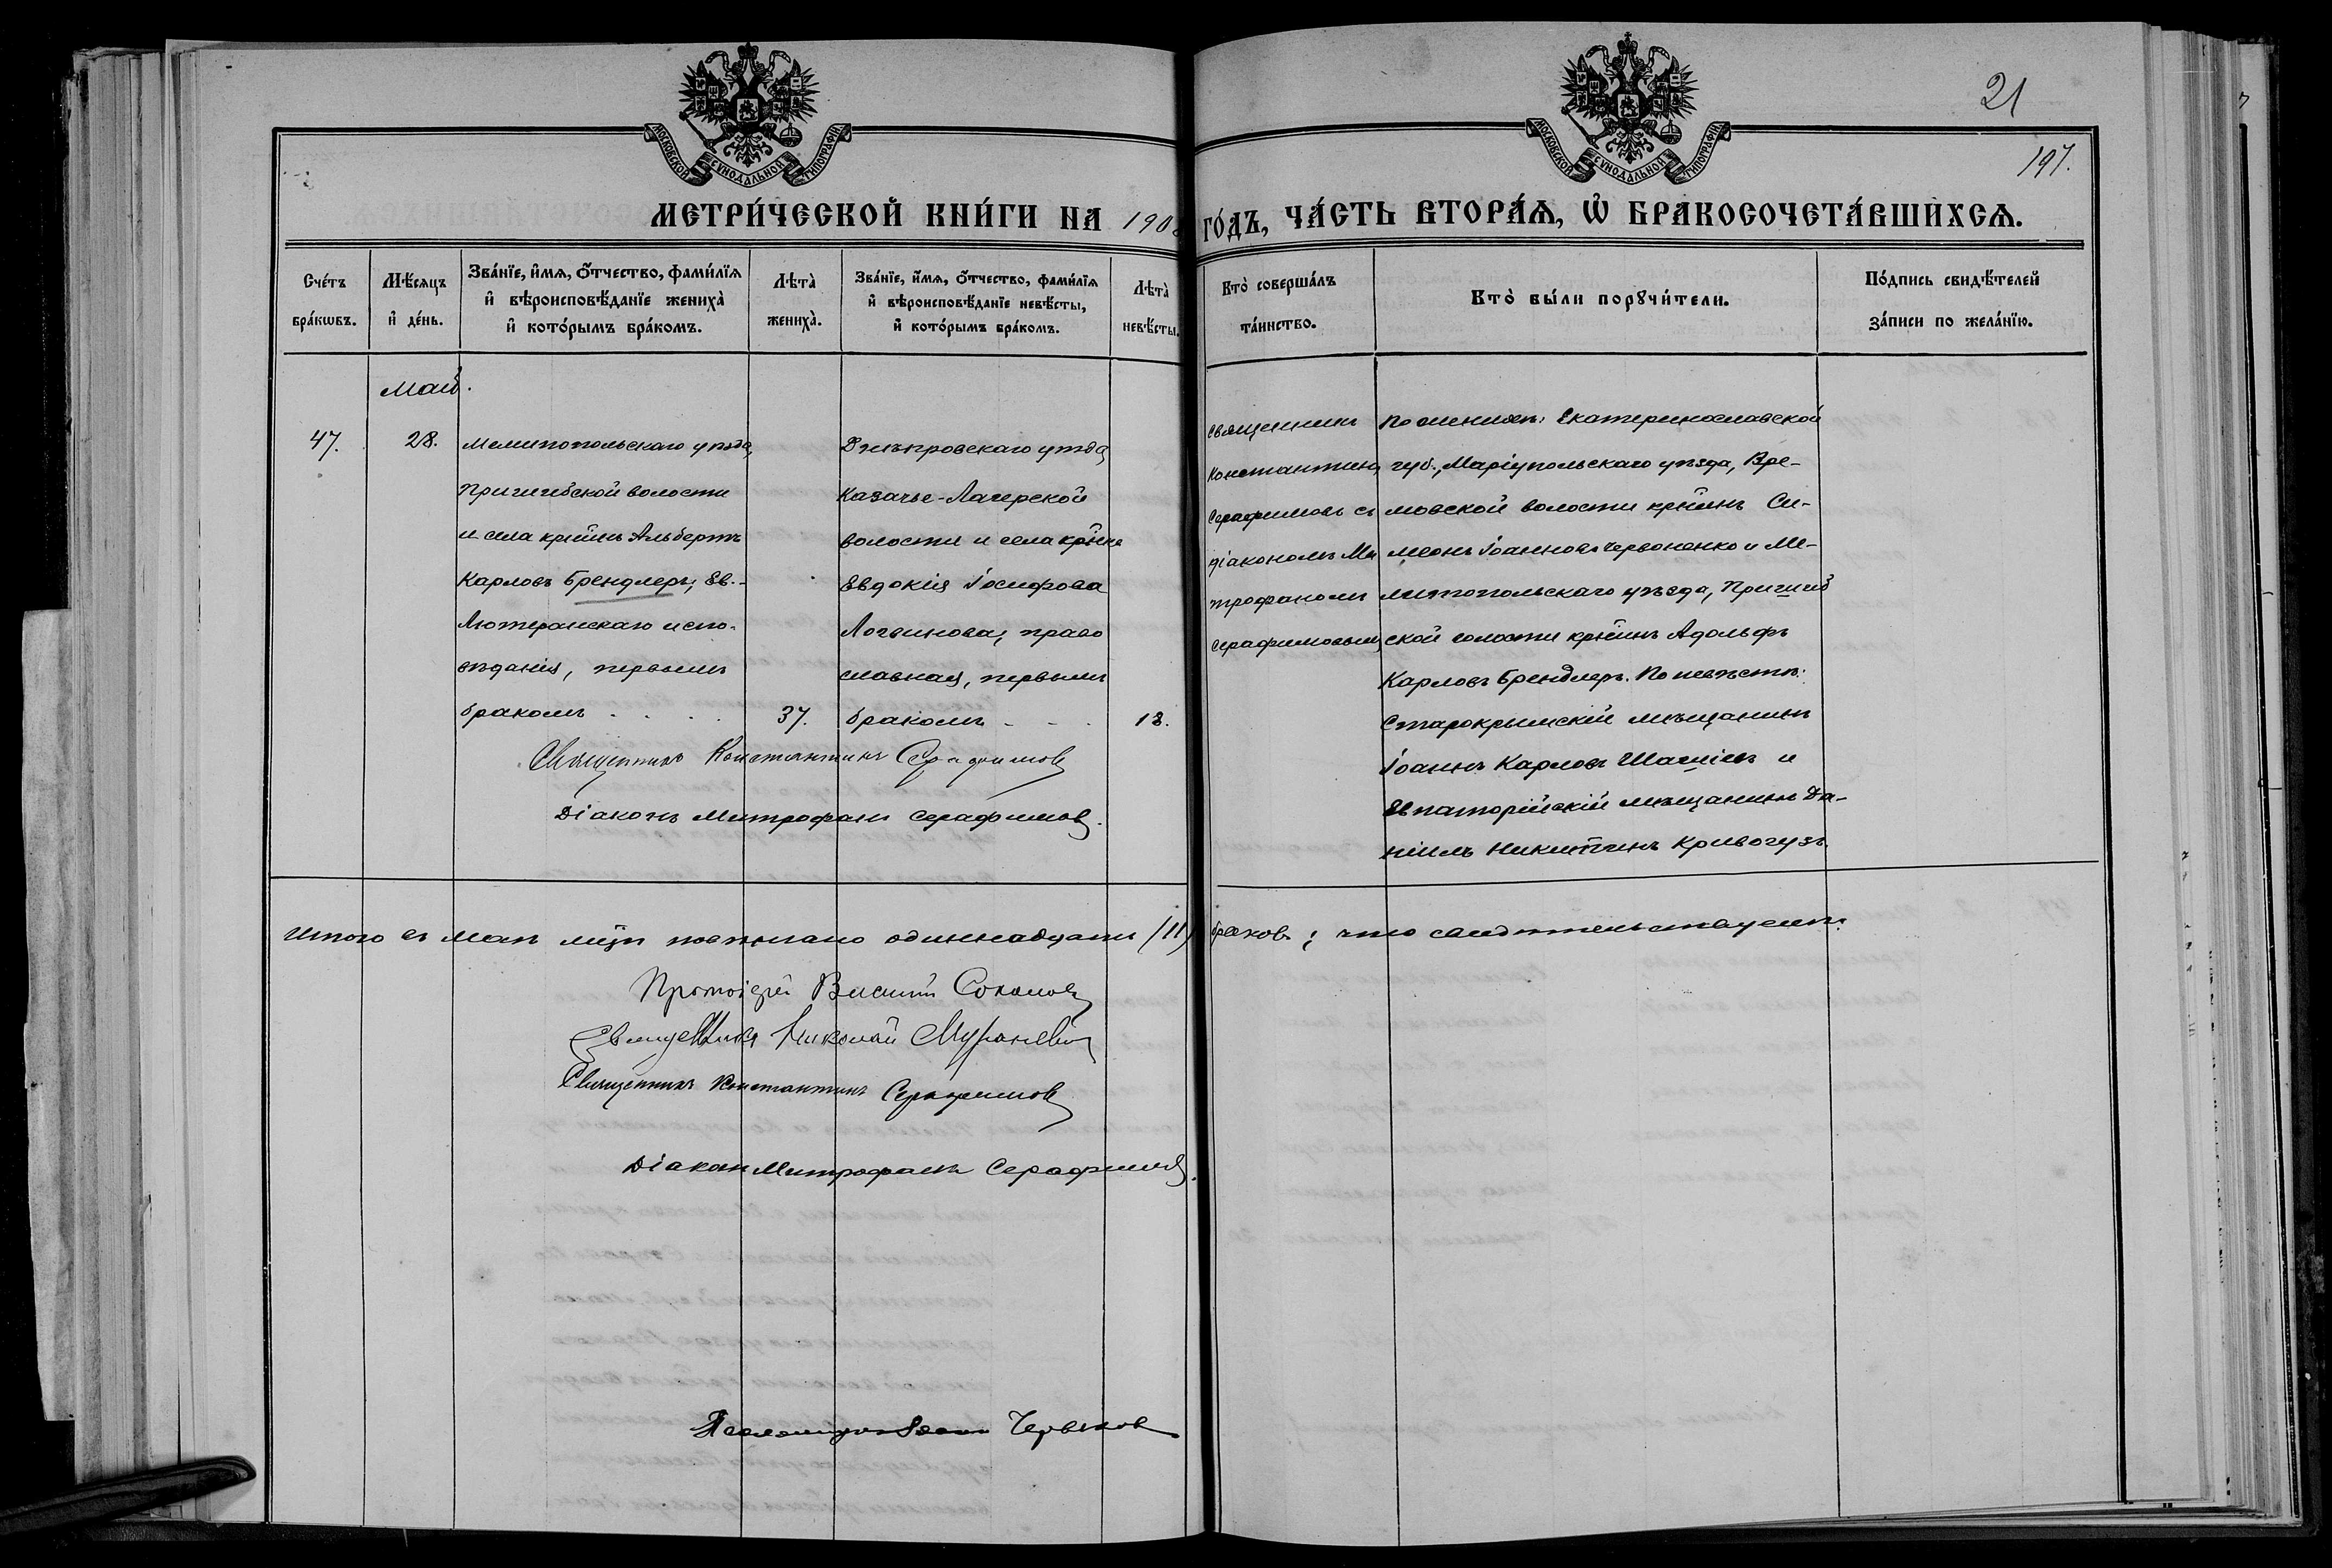 МОСКОВСКОЙ СѴНОДАЛЬНОЙ ТИПОГРАФІИ
МОСКОВСКОЙ СѴНОДАЛЬНОЙ ТИПОГРАФІИ
21
197.
МЕТРИ́ЧЕСКОЙ КНИ́ГИ НА 1908 ГО́ДЪ, ЧА́СТЬ ВТОРА́Ѧ, Ѡ҆ БРАКОСОЧЕТА́ВШИХСѦ.
Сче́тъ
бра́кѡвъ.
Мѣ́сяцъ
и҆ де́нь.
Зва́нїе, и҆́мѧ, ѻ҆́тчество, фами́лїѧ
и҆ вѣроисповѣ́данїе жениха̀
и҆ кото́рымъ бра́комъ.
Лѣта̀
жениха̀.
Зва́нїе, и҆́мѧ, ѻ҆́тчество, фами́лїѧ
и҆ вѣроисповѣ́данїе невѣ́сты,
и҆ кото́рымъ бра́комъ.
Лѣта̀
невѣ́сты.
Кто̀ соверша́лъ
та́инство.
Кто̀ бы́ли порꙋчи́тели.
По́дпись свидѣ́телей
за́писи по жела́нїю.
Май.
47.
28.
Мелитопольскаго уѣзда,
Пришибской волости
и села крнинъ Альбертъ
Карловъ Брендлеръ, Ев.-
Лютеранскаго испо-
вѣданія, первымъ
бракомъ
37.
Днѣпровскаго уѣзда,
Казачье-Лагерской
волости и села крнка
Евдокія Іосифова
Логвинова, право
славная, первымъ
бракомъ
18.
Священникъ Константинъ Серафимовъ
Діаконъ Митрофанъ Серафимовъ.
Священникъ
Константинъ
Серафимовъ съ
діакономъ Ми
трофаномъ
Серафимовымъ
По женихѣ: Екатеринославской
губ., Маріупольскаго уѣзда, Вре-
мовской волости крнинъ Си-
меонъ Іоанновъ Червоненко и Ме-
литопольскаго уѣзда, Пришиб
ской волости крнинъ Адольфъ
Карловъ Брендлеръ. По невѣстѣ:
Старокрымскій мѣщанинъ
Іоаннъ Карловъ и
Евпаторійскій мѣщанинъ Да-
ніилъ Никитинъ Кривогузъ.
Итого въ Маѣ мцѣ повѣнчано одиннадцать (11) браковъ; что свидѣтельствуемъ:
Протоіерей Василій Соколовъ
Священникъ Николай
Священникъ Константинъ Серафимовъ
Діаконъ Митрофанъ Серафимовъ.
Псаломщикъ Червяковъ